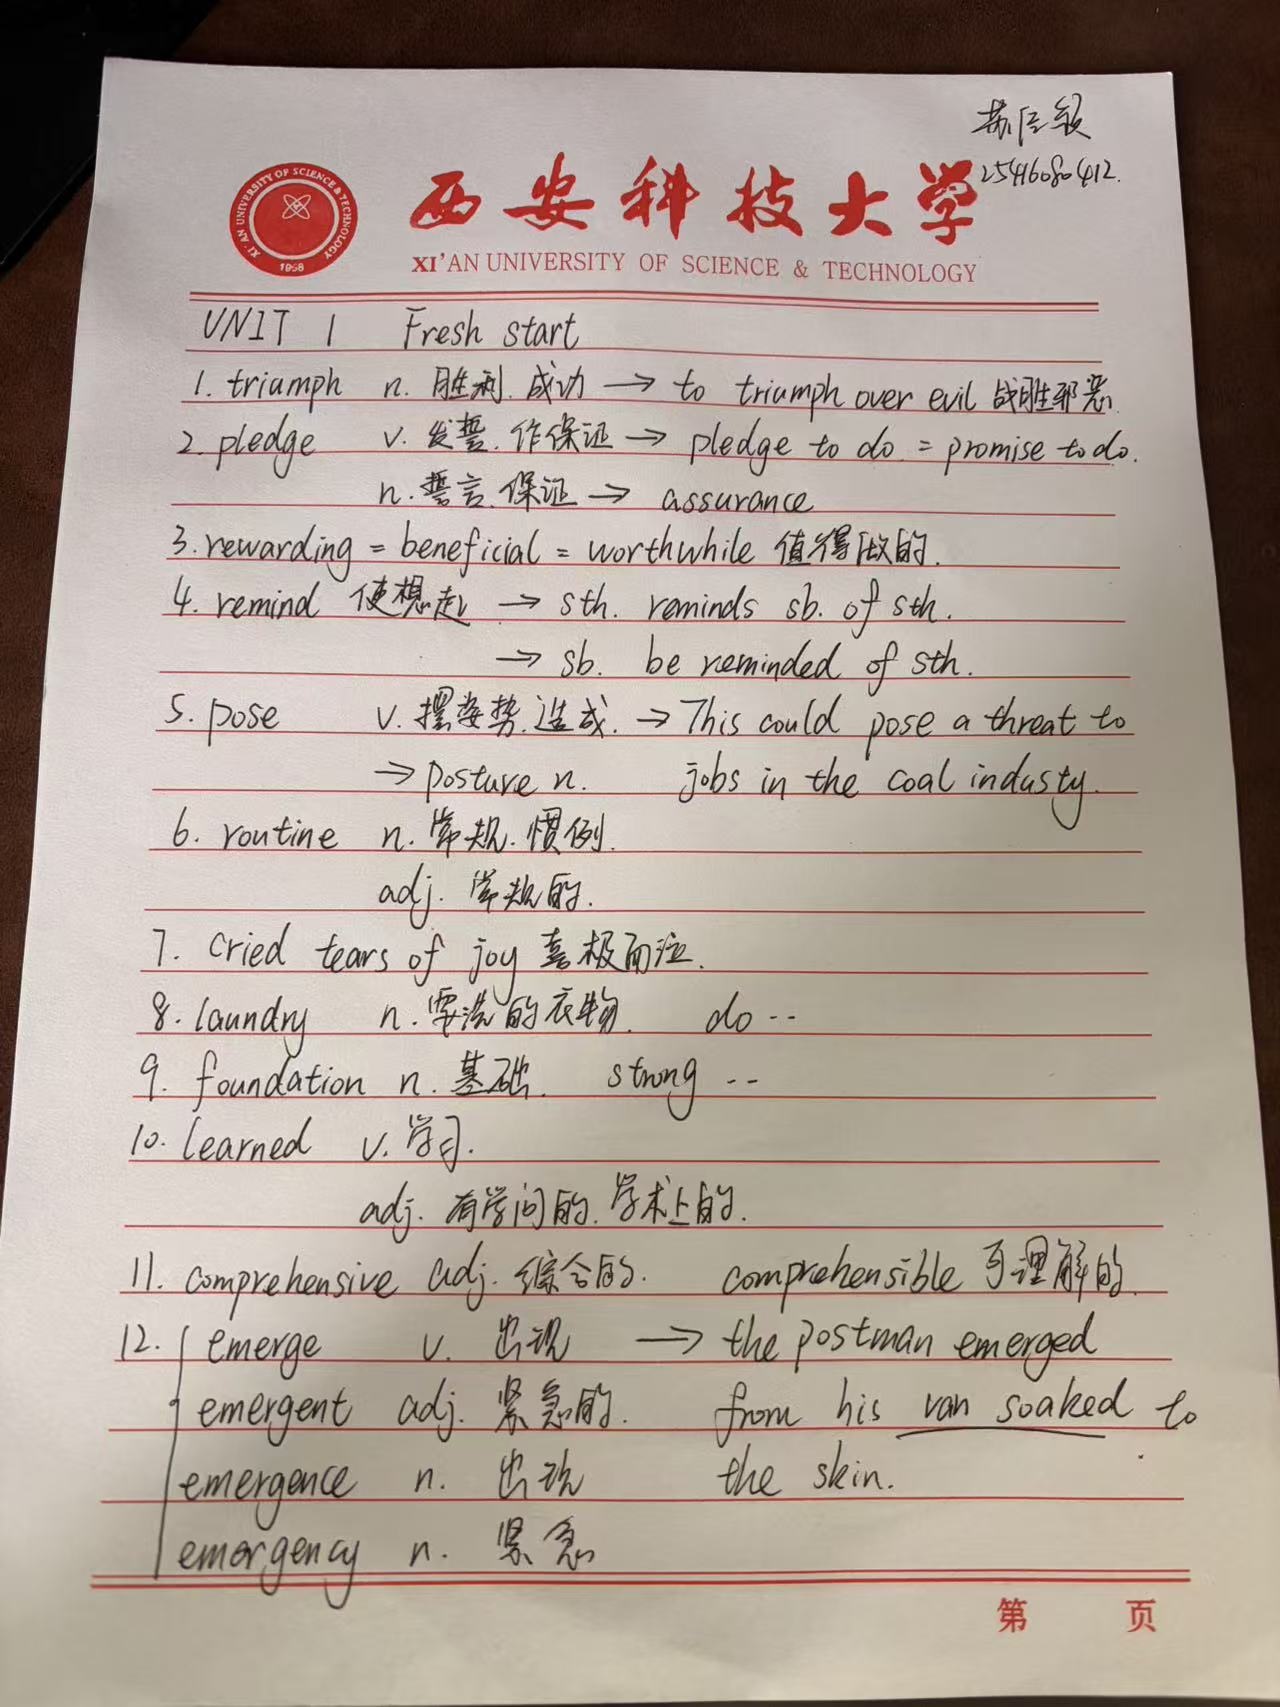 苏
25416080412.
XI'AN UNIVERSITY OF SCIENCE & TECHNOLOGY
1958
西安科技大学
XI'AN UNIVERSITY OF SCIENCE & TECHNOLOGY
UNIT 1 Fresh start
1. triumph n. 胜利.成功 → to triumph over evil 战胜邪恶
2. pledge v. 发誓.作保证 → pledge to do = promise to do.
n. 誓言.保证 → assurance
3. rewarding = beneficial = worthwhile 值得做的.
4. remind 使想起 → sth. reminds sb. of sth.
→ sb. be reminded of sth.
5. pose v. 摆姿势.造成. → This could pose a threat to
→ posture n. jobs in the coal industy.
6. routine n. 常规.惯例.
adj. 常规的.
7. cried tears of joy 喜极而泣.
8. laundry n. 要洗的衣物. do --
9. foundation n. 基础. strong --
10. learned v. 学习.
adj. 有学问的.学术上的.
11. comprehensive adj. 综合的. comprehensible 可理解的.
12. emerge v. 出现 → the postman emerged
emergent adj. 紧急的. from his van soaked to
emergence n. 出现 the skin.
emergency n. 紧急
第 页